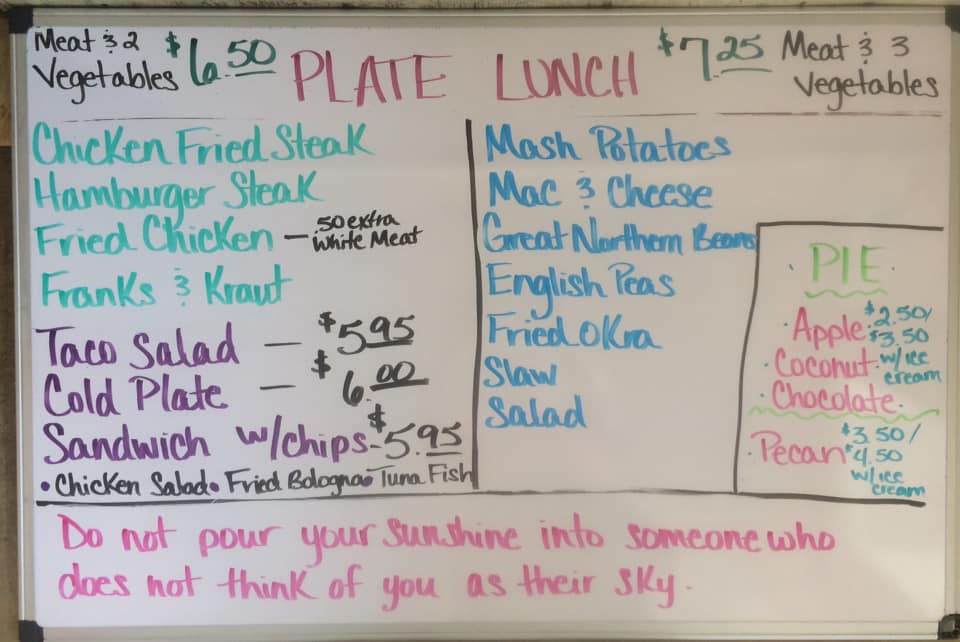 Meat & 2
Vegetables
$6.50
PLATE LUNCH
$7.25
Meat & 3
Vegetables
Chicken Fried Steak
Hamburger Steak
Fried Chicken — .50 extra
White Meat
Franks & Kraut
Taco Salad — $5.95
Cold Plate — $6.00
Sandwich w/chips - $5.95
• Chicken Salad • Fried Bologna • Tuna Fish
Mash Potatoes
Mac & Cheese
Great Northern Beans
English Peas
Fried Okra
Slaw
Salad
· PIE ·
· Apple $2.50/
$3.50
· Coconut w/ice
cream
· Chocolate ·
· Pecan $3.50/
$4.50
w/ice
cream
Do not pour your sunshine into someone who
does not think of you as their sky.